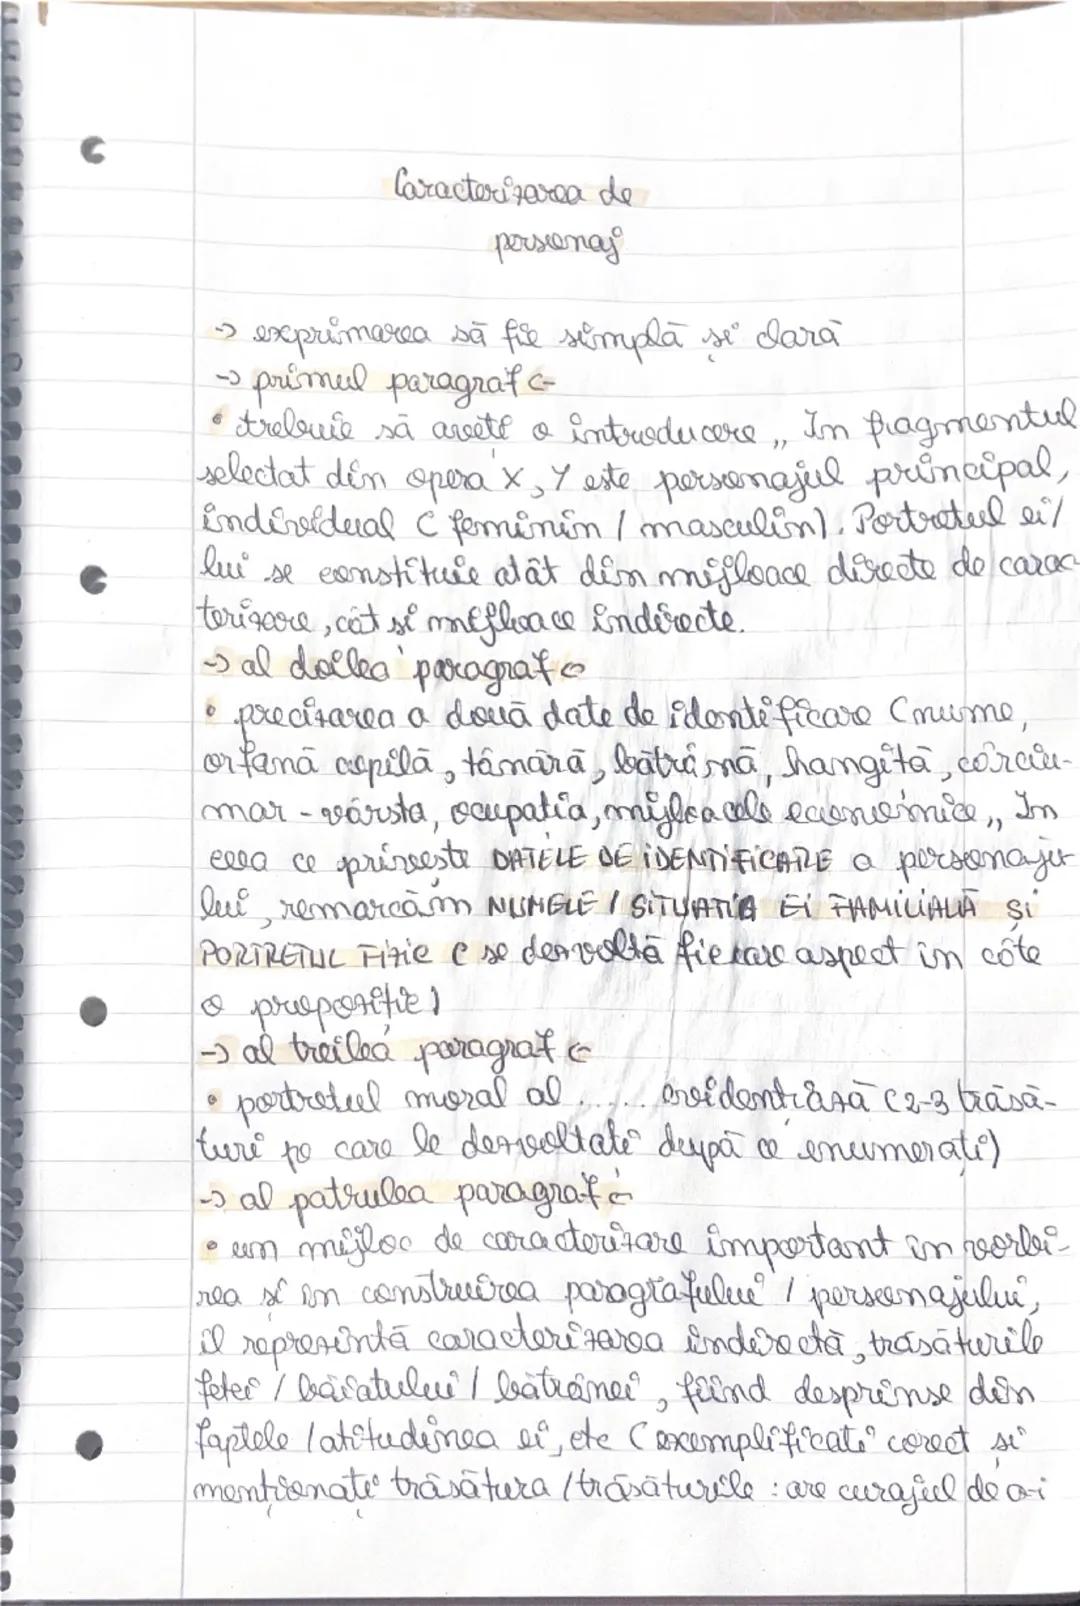 Caracterizarea de
personaj
-> exprimarea să fie simplă și clară
-> primul paragraf <-
• trebuie să aveți o introducere „ In fragmentul
selectat din opera X, Y este personajul principal,
individual ( feminin / masculin). Portretul ei/
lui se constituie atât din mijloace directe de carac-
terizare, cât și mijloace indirecte.
-> al doilea paragraf <-
• precizarea a două date de identificare (nume,
orfană copilă, tânără, bătrână, hangiță, cârciu-
mar - vârsta, ocupația, mijloacele economice „ In
ceea ce privește DATELE DE IDENTIFICARE a personaju
lui, remarcăm NUMELE / SITUAȚIA EI FAMILIALĂ ȘI
PORTRETUL FIZIC ( se dezvoltă fiecare aspect in câte
o propoziție)
-> al treilea paragraf <-
• portretul moral al ..... evidențiază (2-3 trăsă-
turi pe care le dezvoltați după ce enumerați)
-> al patrulea paragraf <-
• un mijloc de caracterizare important in vorbi-
rea si in construirea paragrafului / personajului,
il reprezintă caracterizarea indirectă, trăsăturile
fetei / băiatului / bătrânei, fiind desprinse din
faptele / atitudinea ei, etc ( exemplificați corect și
menționați trăsătura / trăsăturile : are curajul de a-i